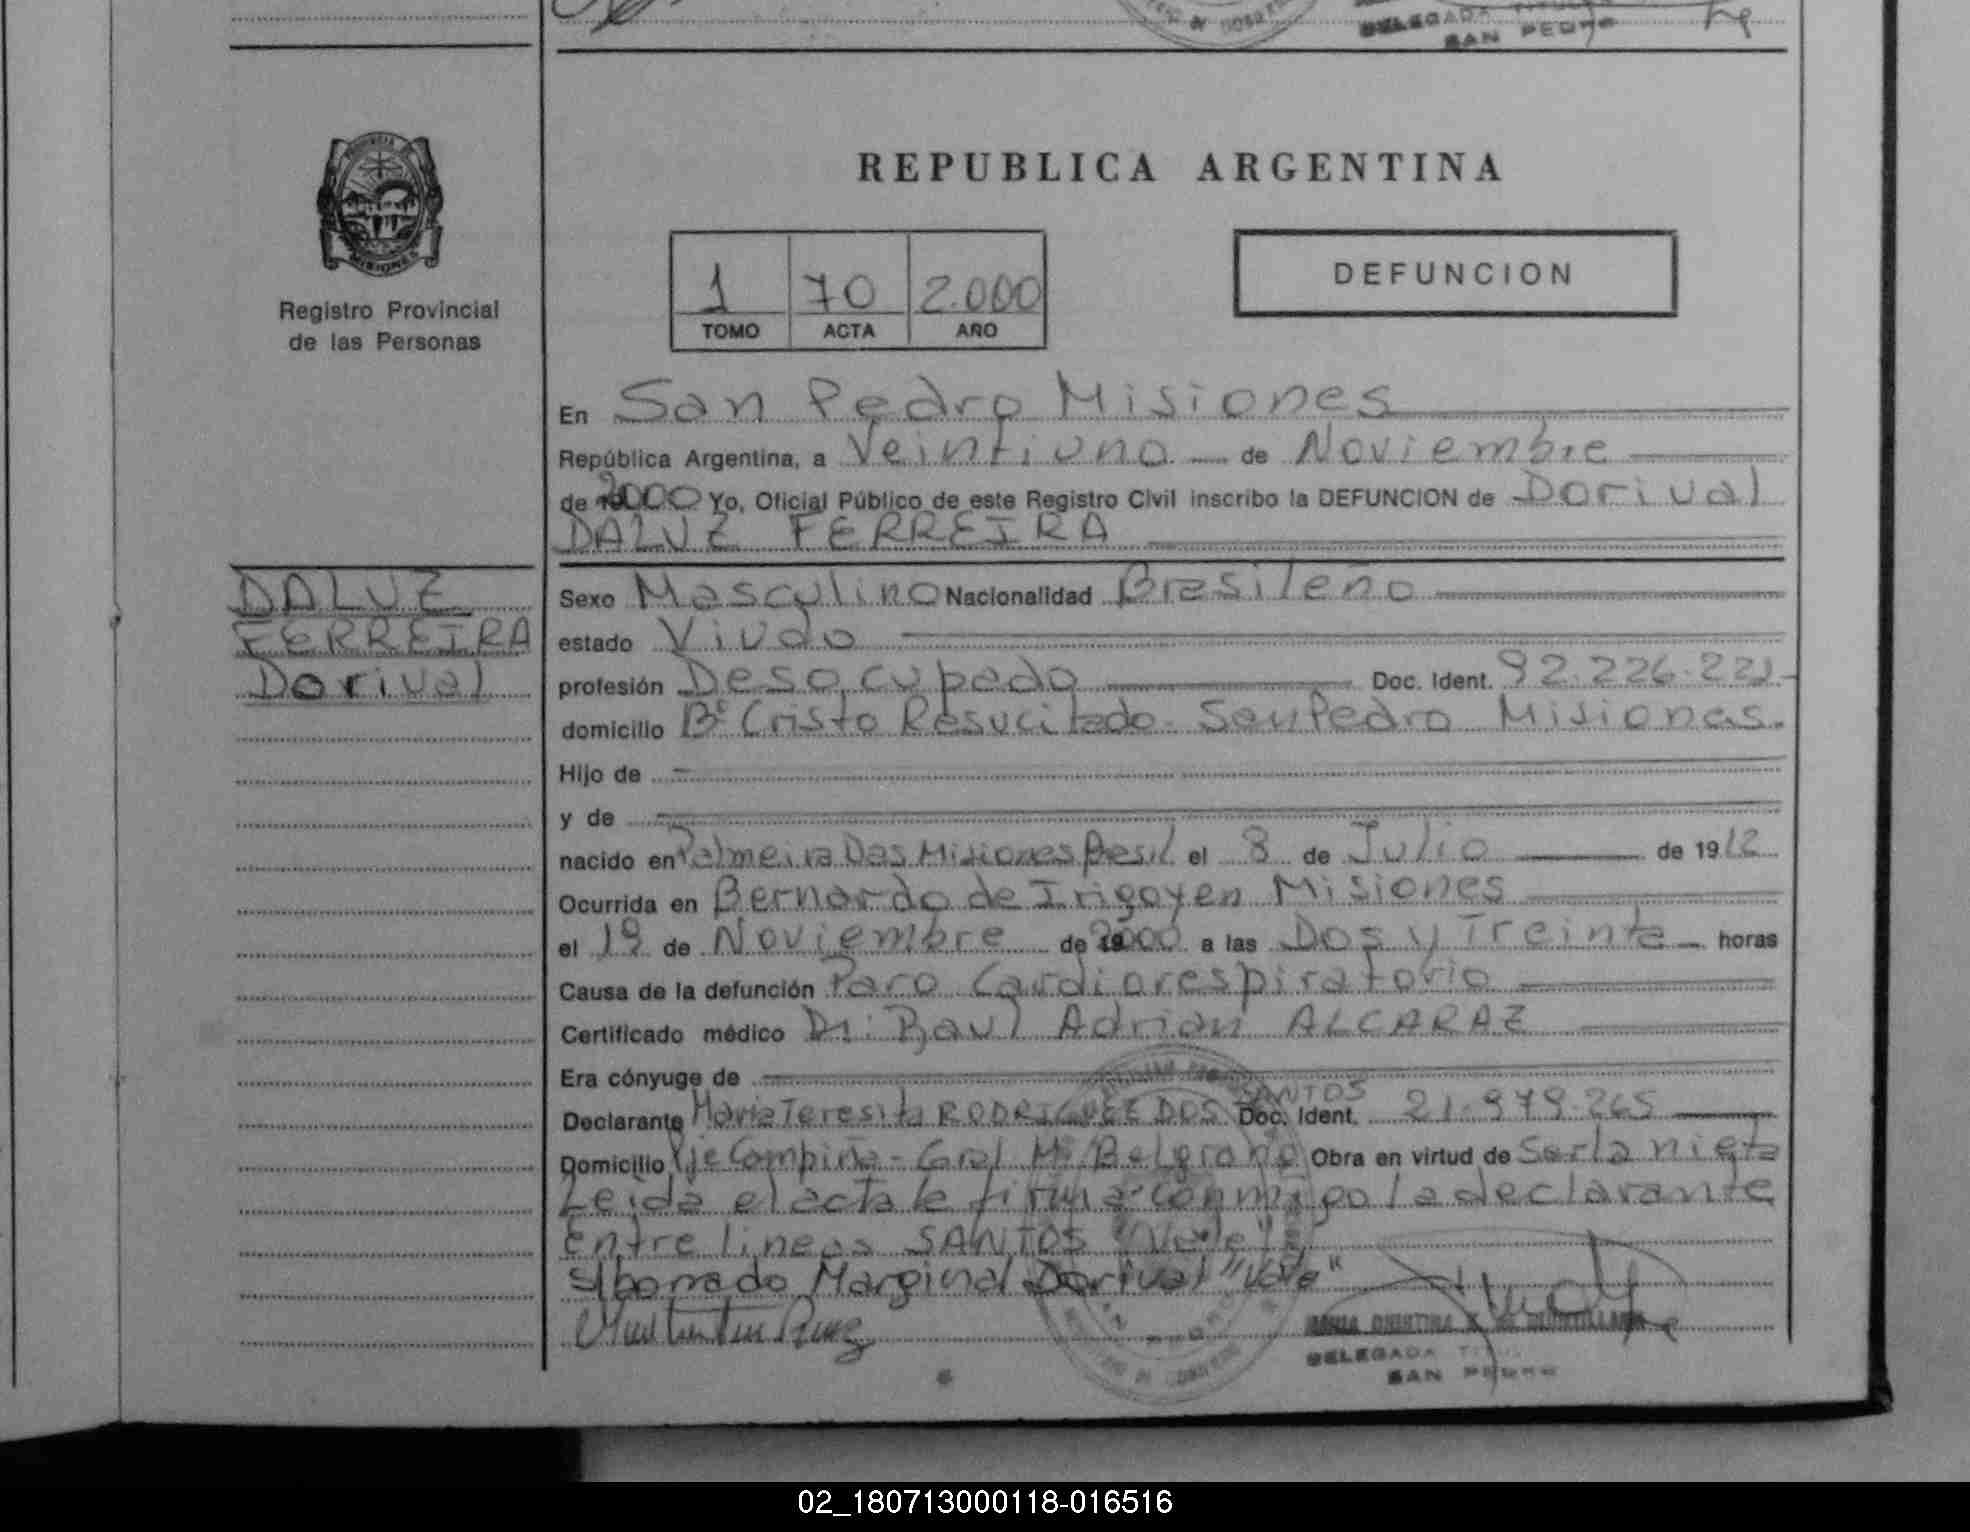 DELEGADA TITULAR
SAN PEDRO
MISIONES
Registro Provincial
de las Personas
REPUBLICA ARGENTINA
1 70 2.000
TOMO ACTA AÑO
DEFUNCION
En San Pedro Misiones
República Argentina, a Veintiuno de Noviembre
de 2000 Yo, Oficial Público de este Registro Civil inscribo la DEFUNCION de Dorival
DALUZ FERREIRA
DALUZ
FERREIRA
Dorival
Sexo Masculino Nacionalidad Brasileño
estado Viudo
profesión Desocupado Doc. Ident. 92.226.221
domicilio Bº Cristo Resucitado San Pedro Misiones.
Hijo de
y de
nacido en Palmeira Das Misiones Brasil el 8 de Julio de 1912
Ocurrida en Bernardo de Irigoyen Misiones
el 19 de Noviembre de 2000 a las Dos y Treinta horas
Causa de la defunción Paro Cardiorespiratorio
Certificado médico Dr: Raul Adrian ALCARAZ
Era cónyuge de
SANTOS
Declarante Maria Teresita RODRIGUEZ DOS Doc. Ident. 21.979.265
Domicilio Pje Campiña - Gral Ml Belgrano Obra en virtud de Ser la nieta
Leida el acta la firma conmigo la declarante
Entre lineas SANTOS "Vale"
S/borrado Marginal Dorival "Vale"
DELEGADA
SAN PEDRO
02_180713000118-016516